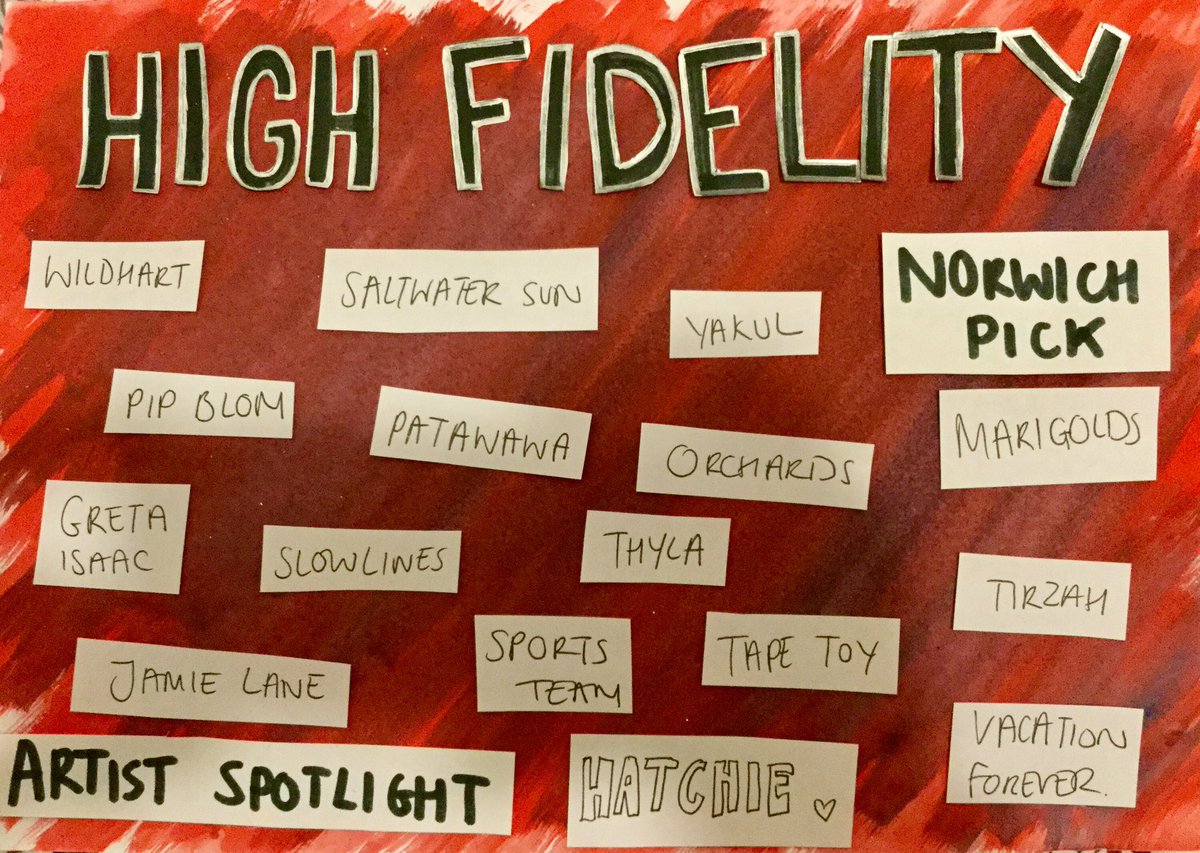 HIGH FIDELITY
WILDHART
SALTWATER SUN
YAKUL
NORWICH
PICK
PIP BLOM
PATAWAWA
ORCHARDS
MARIGOLDS
GRETA
ISAAC
SLOWLINES
THYLA
TIRZAH
JAMIE LANE
SPORTS
TEAM
TAPE TOY
VACATION
FOREVER.
ARTIST SPOTLIGHT
HATCHIE